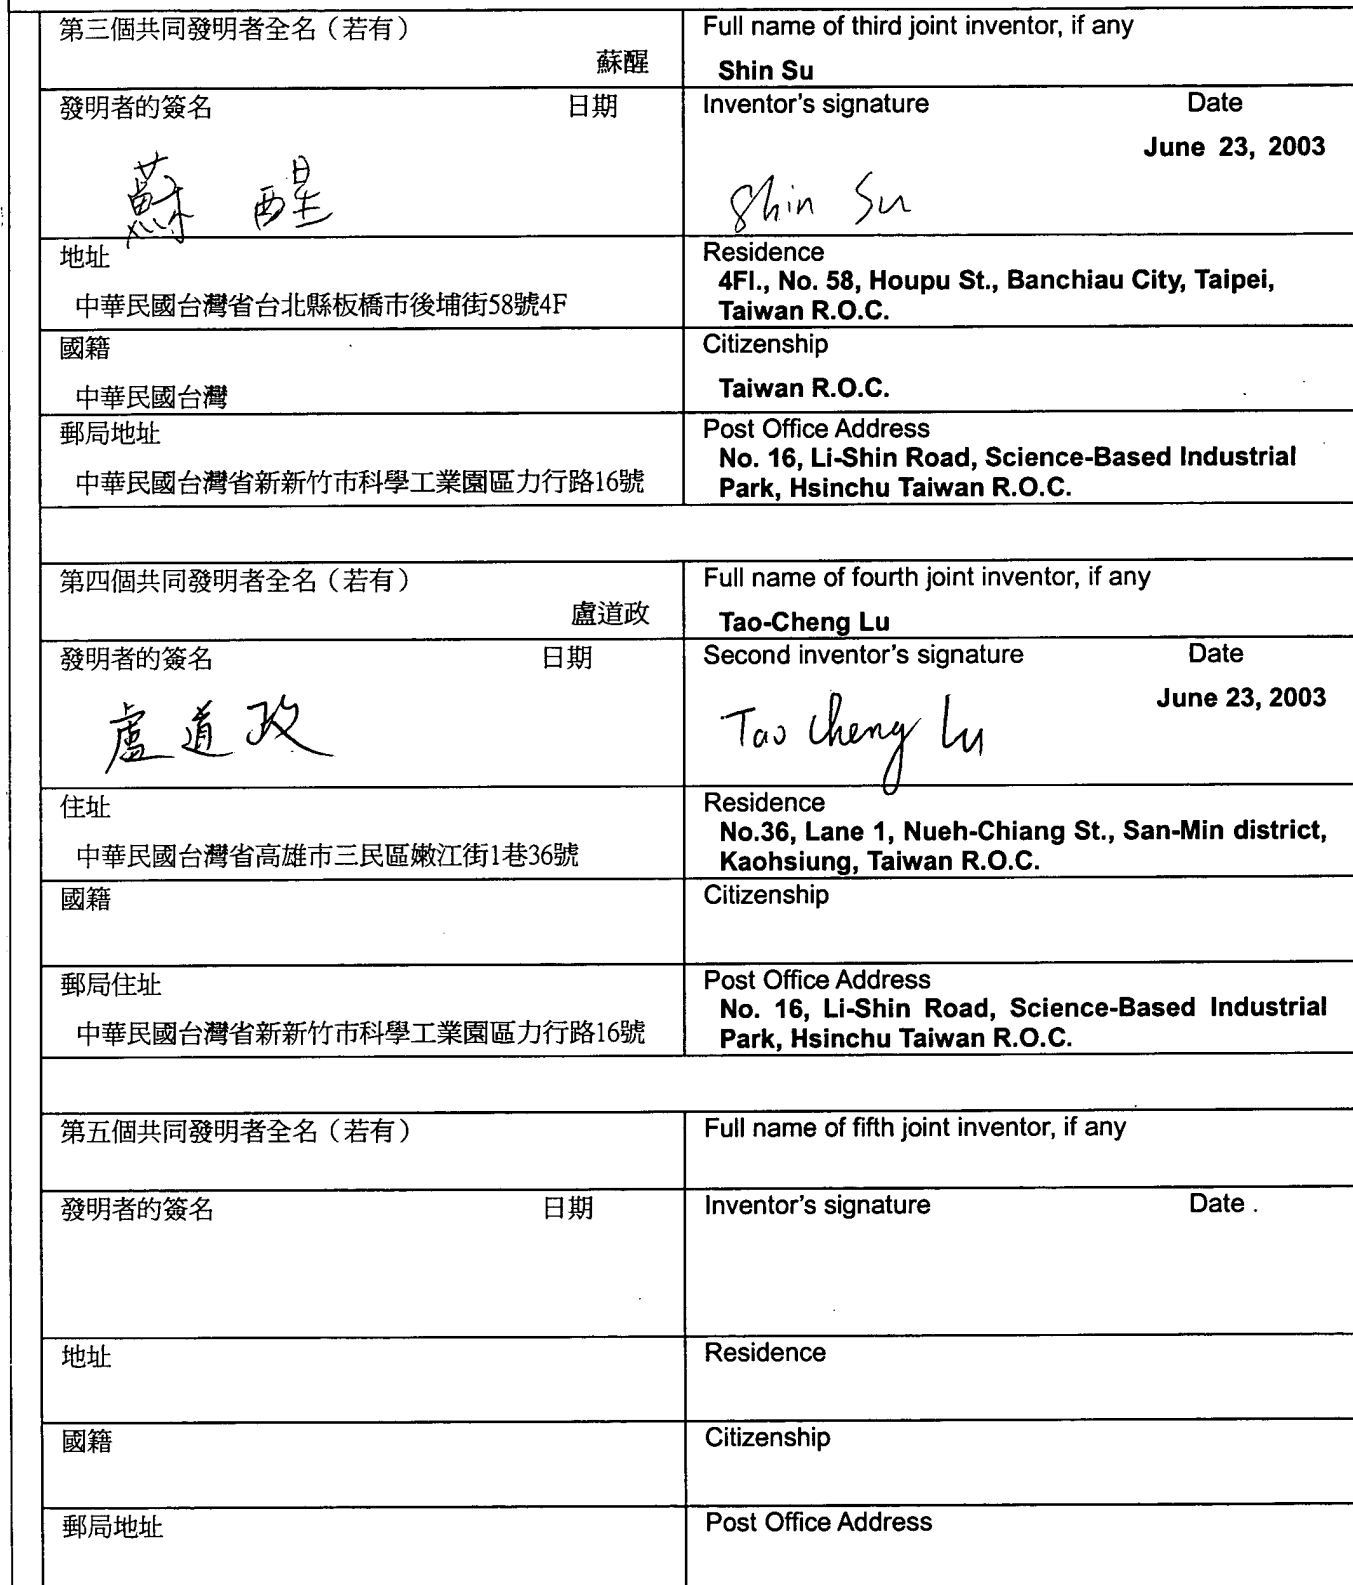 第三個共同發明者全名（若有）
蘇醒
Full name of third joint inventor, if any
Shin Su
發明者的簽名 日期
蘇 醒
Inventor's signature Date
June 23, 2003
Shin Su
地址
中華民國台灣省台北縣板橋市後埔街58號4F
Residence
4Fl., No. 58, Houpu St., Banchiau City, Taipei,
Taiwan R.O.C.
國籍
中華民國台灣
Citizenship
Taiwan R.O.C.
郵局地址
中華民國台灣省新新竹市科學工業園區力行路16號
Post Office Address
No. 16, Li-Shin Road, Science-Based Industrial
Park, Hsinchu Taiwan R.O.C.
第四個共同發明者全名（若有）
盧道政
Full name of fourth joint inventor, if any
Tao-Cheng Lu
發明者的簽名 日期
盧道政
Second inventor's signature Date
June 23, 2003
Tao Cheng Lu
住址
中華民國台灣省高雄市三民區嫩江街1巷36號
Residence
No.36, Lane 1, Nueh-Chiang St., San-Min district,
Kaohsiung, Taiwan R.O.C.
國籍
Citizenship
郵局住址
中華民國台灣省新新竹市科學工業園區力行路16號
Post Office Address
No. 16, Li-Shin Road, Science-Based Industrial
Park, Hsinchu Taiwan R.O.C.
第五個共同發明者全名（若有）
Full name of fifth joint inventor, if any
發明者的簽名 日期
Inventor's signature Date
地址
Residence
國籍
Citizenship
郵局地址
Post Office Address